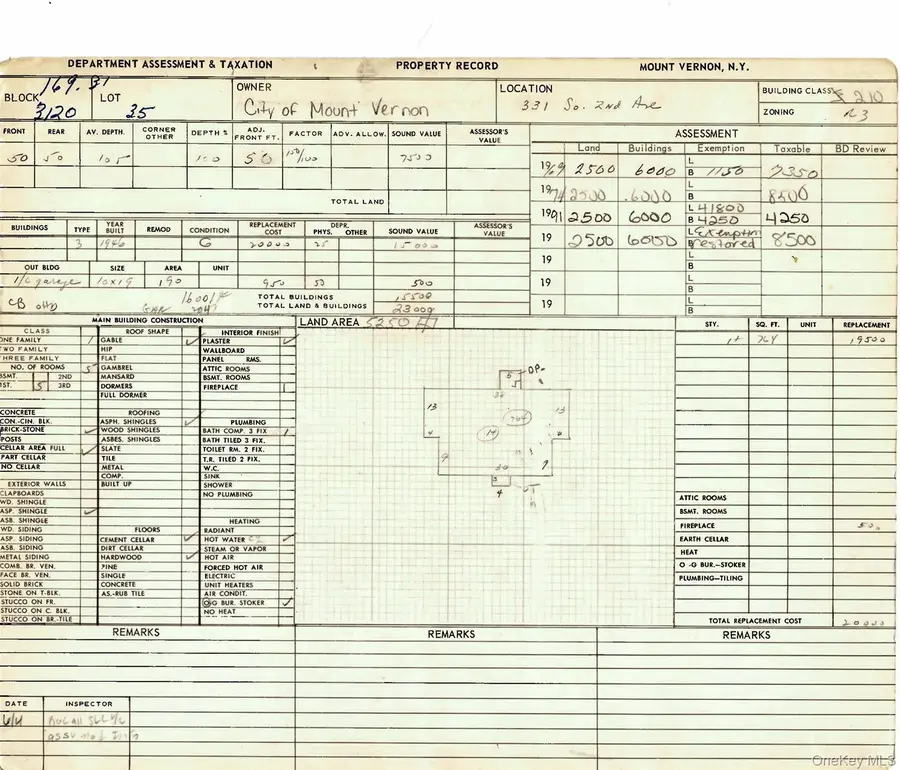 DEPARTMENT ASSESSMENT & TAXATION PROPERTY RECORD MOUNT VERNON, N.Y.
BLOCK 169.31 3120 LOT 35 OWNER City of Mount Vernon LOCATION 331 So. 2nd Ave BUILDING CLASS 210
ZONING R3
FRONT REAR AV. DEPTH. CORNER OTHER DEPTH % ADJ. FRONT FT. FACTOR ADV. ALLOW. SOUND VALUE ASSESSOR'S VALUE
50 50 105 100 50 150/100 7500
TOTAL LAND
ASSESSMENT
Land Buildings Exemption Taxable BD Review
1969 2500 6000 L B 1150 7350
1974 2500 6000 L B 8500
1991 2500 6000 L 41800 B 4250 4250
19 2500 6000 L Exemption B restored 8500
19 L B
19 L B
19 L B
BUILDINGS TYPE YEAR BUILT REMOD CONDITION REPLACEMENT COST DEPR. PHYS. OTHER SOUND VALUE ASSESSOR'S VALUE
3 1946 G 20000 25 15000
OUT BLDG SIZE AREA UNIT
1/c garage 10x19 190 950 50 500
CB OHD
TOTAL BUILDINGS 15500
TOTAL LAND & BUILDINGS 23000
MAIN BUILDING CONSTRUCTION
CLASS
ONE FAMILY 1
TWO FAMILY
THREE FAMILY
NO. OF ROOMS 5
BSMT. 2ND
1ST. 5 3RD
CONCRETE
CON.-CIN. BLK.
BRICK-STONE ✓
POSTS
CELLAR AREA FULL ✓
PART CELLAR
NO CELLAR
EXTERIOR WALLS
CLAPBOARDS
WD. SHINGLE
ASP. SHINGLE ✓
ASB. SHINGLE
WD. SIDING
ASP. SIDING
ASB. SIDING
METAL SIDING
COMB. BR. VEN.
FACE BR. VEN.
SOLID BRICK
STONE ON T-BLK.
STUCCO ON FR.
STUCCO ON C. BLK.
STUCCO ON BR.-TILE
ROOF SHAPE
GABLE ✓
HIP
FLAT
GAMBREL
MANSARD
DORMERS
FULL DORMER
ROOFING
ASPH. SHINGLES ✓
WOOD SHINGLES
ASBES. SHINGLES
SLATE
TILE
METAL
COMP.
BUILT UP
FLOORS
CEMENT CELLAR ✓
DIRT CELLAR
HARDWOOD ✓
PINE
SINGLE
CONCRETE
AS.-RUB TILE
INTERIOR FINISH
PLASTER ✓
WALLBOARD
PANEL RMS.
ATTIC ROOMS
BSMT. ROOMS
FIREPLACE 1
PLUMBING
BATH COMP. 3 FIX 1
BATH TILED 3 FIX.
TOILET RM. 2 FIX.
T.R. TILED 2 FIX.
W.C.
SINK
SHOWER
NO PLUMBING
HEATING
RADIANT
HOT WATER ✓
STEAM OR VAPOR
HOT AIR
FORCED HOT AIR
ELECTRIC
UNIT HEATERS
AIR CONDIT.
O-G BUR. STOKER ✓
NO HEAT
LAND AREA 5250
OP
5
13
764
13
14
4
9
9
30
4
STY. SQ. FT. UNIT REPLACEMENT
1+ 764 19500
ATTIC ROOMS
BSMT. ROOMS
FIREPLACE 500
EARTH CELLAR
HEAT
O-G BUR.—STOKER
PLUMBING—TILING
TOTAL REPLACEMENT COST 20000
REMARKS REMARKS REMARKS
DATE INSPECTOR
OneKey MLS